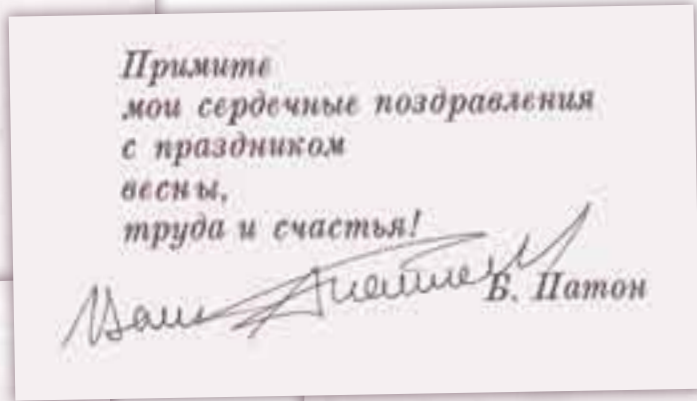 Примите
мои сердечные поздравления
с праздником
весны,
труда и счастья!
Ваш
Б. Патон